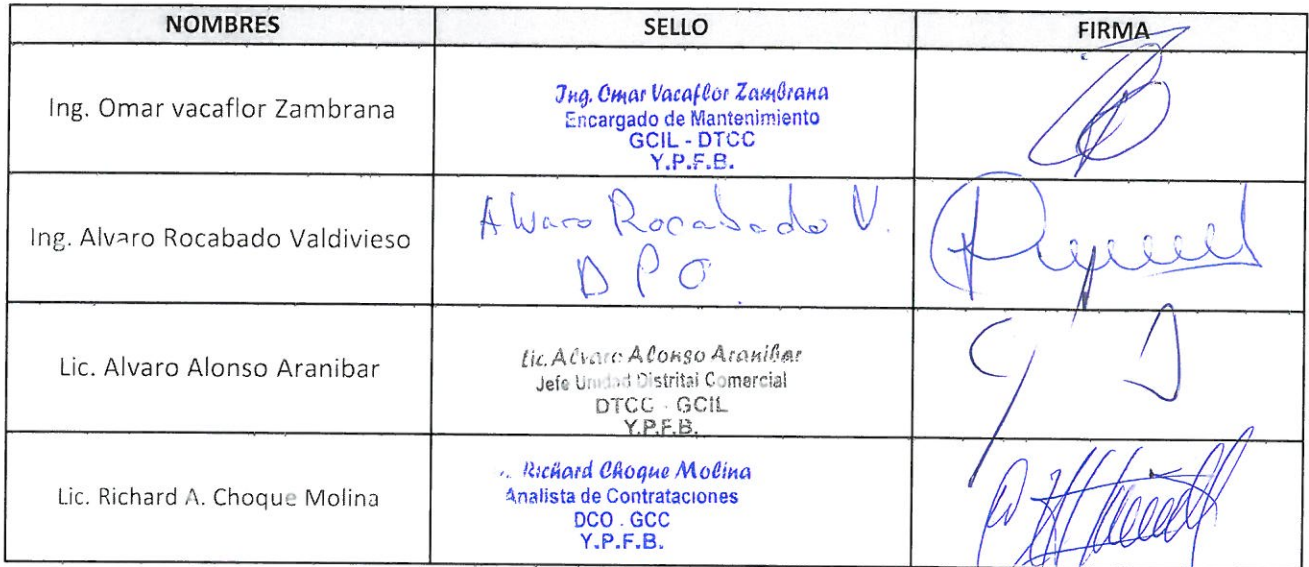 NOMBRES SELLO FIRMA
Ing. Omar vacaflor Zambrana
Ing. Omar Vacaflor Zambrana
Encargado de Mantenimiento
GCIL - DTCC
Y.P.F.B.
Ing. Alvaro Rocabado Valdivieso
Alvaro Rocabado V.
DPO
Lic. Alvaro Alonso Aranibar
Lic. Alvaro Alonso Aranibar
Jefe Unidad Distrital Comercial
DTCC - GCIL
Y.P.F.B.
Lic. Richard A. Choque Molina
Richard Choque Molina
Analista de Contrataciones
DCO - GCC
Y.P.F.B.